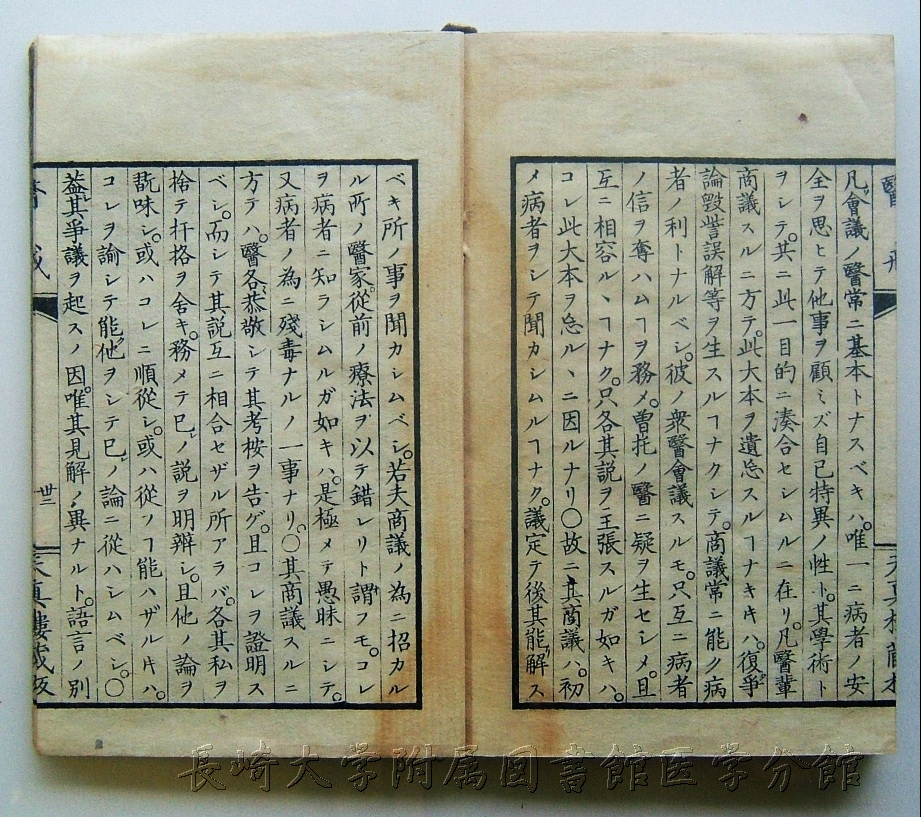 凡會議ノ醫常ニ基本トナスベキハ。唯一ニ病者ノ安
全ヲ思ヒテ他事ヲ顧ミズ自己特異ノ性ト。其學術ト
ヲシテ。共ニ此一目的ニ湊合セシムルニ在リ。凡醫輩
商議スルニ方テ。此大本ヲ遺忘スルヿナキキハ。復爭
論毀訾誤解等ヲ生スルヿナクシテ。商議常ニ能ク病
者ノ利トナルベシ。彼ノ衆醫會議スルモ。只互ニ病者
ノ信ヲ奪ハムヿヲ務メ。曽托ノ醫ニ疑ヲ生セシメ。且
互ニ相容ルヽヿナク。只各其説ヲ主張スルガ如キハ。
コレ此大本ヲ忘ルヽニ因ルナリ〇故ニ其商議ハ。初
メ病者ヲシテ聞カシムルヿナク。議定テ後其能解ス
ベキ所ノ事ヲ聞カシムベシ。若夫商議ノ為ニ招カル
ル所ノ醫家。從前ノ療法ヲ以テ錯レリト謂フモ。コレ
ヲ病者ニ知ラシムルガ如キハ。是極メテ愚昧ニシテ。
又病者ノ為ニ殘毒ナルノ一事ナリ。〇其商議スルニ
方テハ。醫各恭敬シテ其考按ヲ告グ。且コレヲ證明ス
ベシ。而シテ其説互ニ相合セザル所アラバ。各其私ヲ
捨テ扞格ヲ舍キ。務メテ己ノ説ヲ明辨シ。且他ノ論ヲ
翫味シ。或ハコレニ順從シ。或ハ從フヿ能ハザル片ハ。
コレヲ諭シテ能他ヲシテ己ノ論ニ從ハシムベシ。〇
葢其爭議ヲ起スノ因。唯其見解ノ異ナルト。語言ノ別
丗二
天真樓藏板
長崎大学附属図書館医学分館